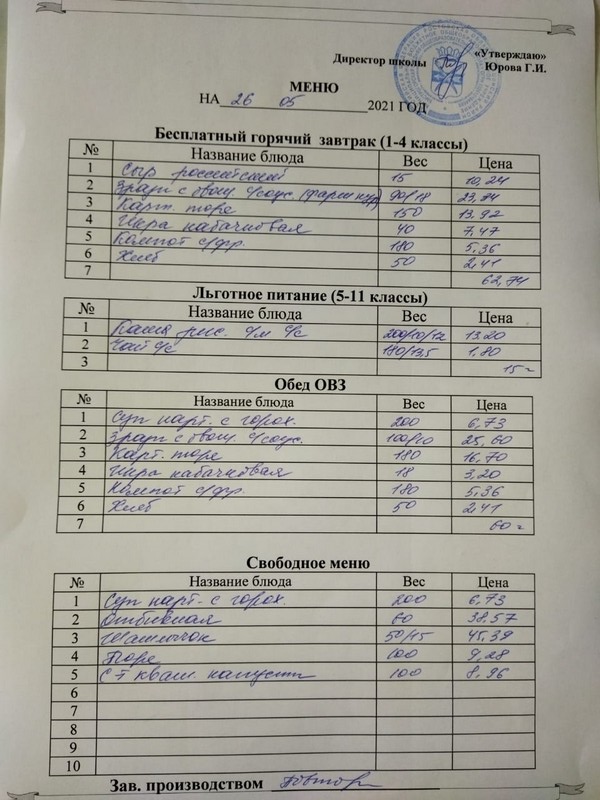 «Утверждаю»
Директор школы Юрова Г.И.
МЕНЮ
НА 26 05 2021 ГОД
Бесплатный горячий завтрак (1-4 классы)
№ Название блюда Вес Цена
1 Сыр российский 15 10,24
2 Зразы с овощ. с/соус. (фарш кур) 90/18 23,34
3 Карт. пюре 150 13,92
4 Икра кабачковая 40 7,47
5 Компот с/фр. 180 5,36
6 Хлеб 50 2,41
7 62,74
Льготное питание (5-11 классы)
№ Название блюда Вес Цена
1 Каша рис. с/м с/с 13,20
2 Чай с/с 180/13,5 1,80
3 15 =
Обед ОВЗ
№ Название блюда Вес Цена
1 Суп карт. с горох. 200 6,73
2 Зразы с овощ. с/соус. 100/10 25,60
3 Карт. пюре 180 16,70
4 Икра кабачковая 18 3,20
5 Компот с/фр. 180 5,36
6 Хлеб 50 2,41
7 60 =
Свободное меню
№ Название блюда Вес Цена
1 Суп карт. с горох. 200 6,73
2 Отбивная 60 38,57
3 Шашлычок 50/45 45,39
4 Пюре 100 9,28
5 С-т кваш. капусты 100 8,96
6
7
8
9
10
Зав. производством